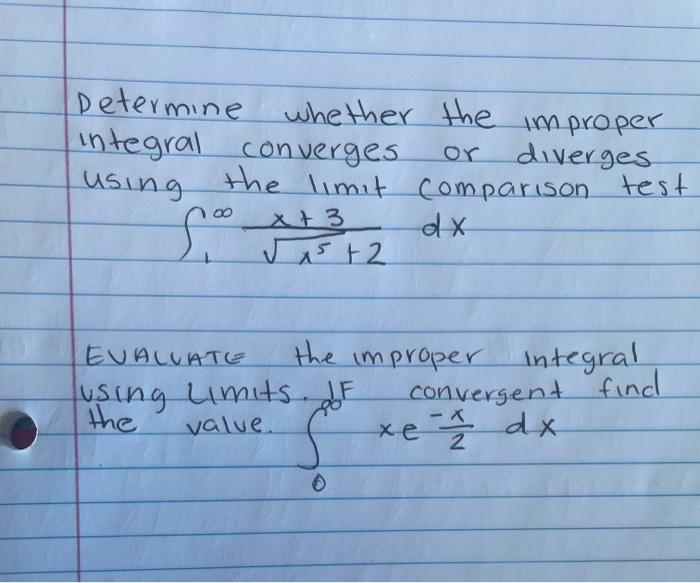 Determine whether the improper
integral converges or diverges
using the limit comparison test
∫₁^∞ (x + 3)/(√x⁵ + 2) dx
EVALUATE the improper integral
using Limits. IF convergent find
the value. ∫₀^∞ xe^(-x/2) dx